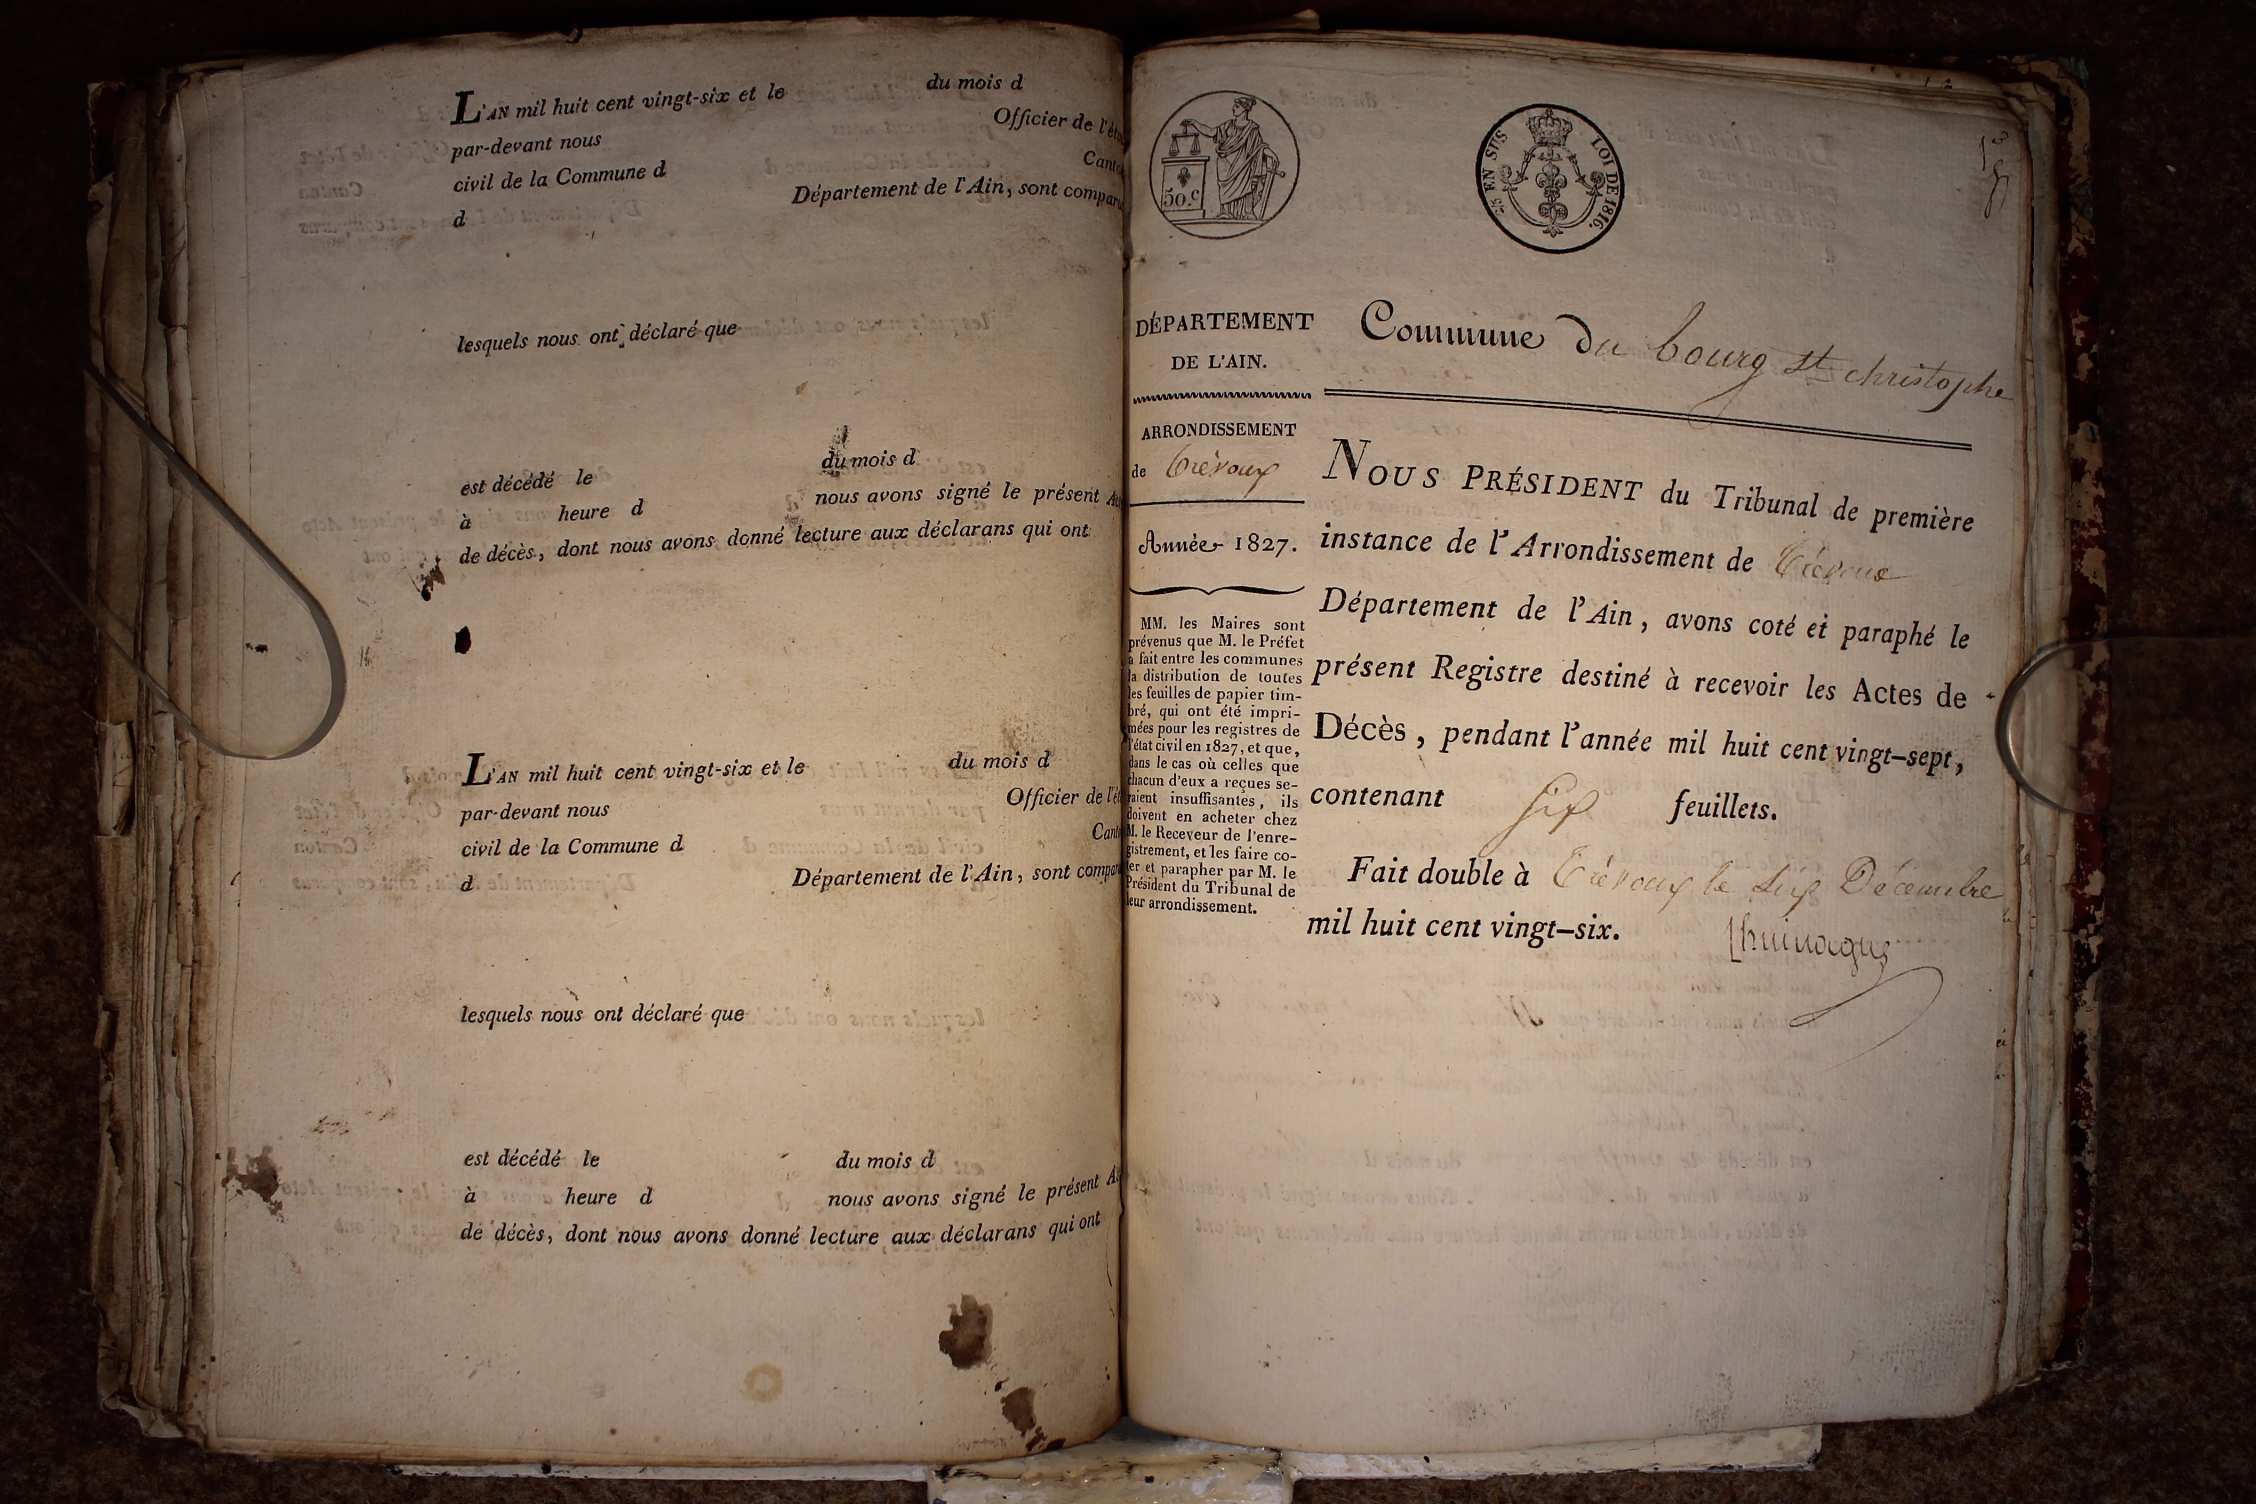 L'AN mil huit cent vingt-six et le du mois d
par-devant nous Officier de l'ét
civil de la Commune d Canto
d Département de l'Ain, sont comparu
lesquels nous ont déclaré que
est décédé le du mois d
à heure d nous avons signé le présent Ac
de décès, dont nous avons donné lecture aux déclarans qui ont
L'AN mil huit cent vingt-six et le du mois d
par-devant nous Officier de l'ét
civil de la Commune d Cant
d Département de l'Ain, sont compar
lesquels nous ont déclaré que
est décédé le du mois d
à heure d nous avons signé le présent Ac
de décès, dont nous avons donné lecture aux déclarans qui ont
50.c
EN SUS LOI DE 1816.
DÉPARTEMENT
DE L'AIN.
ARRONDISSEMENT
de Trévoux
Année 1827.
MM. les Maires sont
prévenus que M. le Préfet
a fait entre les communes
la distribution de toutes
les feuilles de papier tim-
bré, qui ont été impri-
mées pour les registres de
l'état civil en 1827, et que,
dans le cas où celles que
chacun d'eux a reçues se-
raient insuffisantes, ils
doivent en acheter chez
M. le Receveur de l'enre-
gistrement, et les faire co-
ter et parapher par M. le
Président du Tribunal de
leur arrondissement.
Commune du bourg st christophe
NOUS PRÉSIDENT du Tribunal de première
instance de l'Arrondissement de Trévoux
Département de l'Ain, avons coté et paraphé le
présent Registre destiné à recevoir les Actes de
Décès, pendant l'année mil huit cent vingt-sept,
contenant six feuillets.
Fait double à Trévoux le six Décembre
mil huit cent vingt-six.